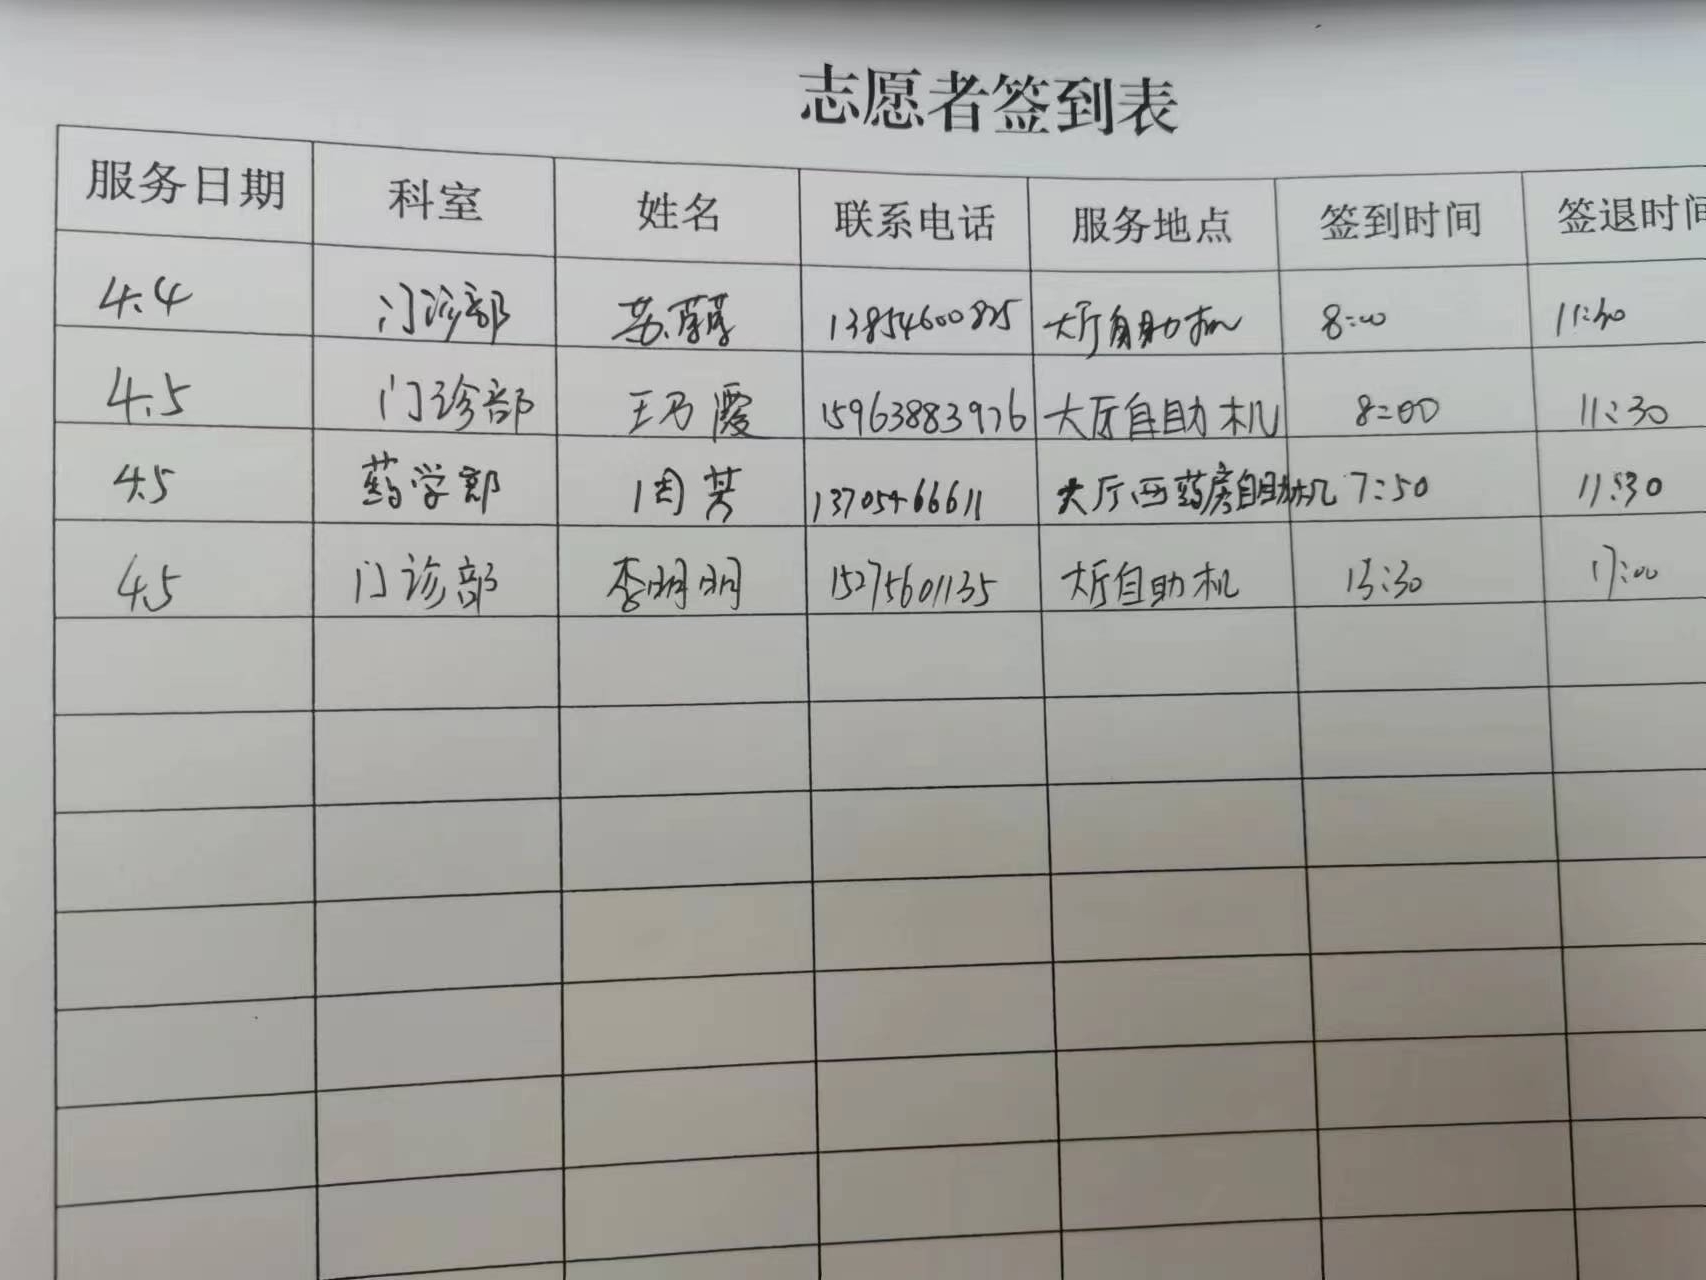 志愿者签到表
服务日期 科室 姓名 联系电话 服务地点 签到时间 签退时间
4.4 门诊部 苏 13854600825 大厅自助机 8:00 11:30
4.5 门诊部 王乃霞 15963883976 大厅自助机 8:00 11:30
4.5 药学部 周芳 13705466611 大厅西药房自助机 7:50 11:30
4.5 门诊部 李明明 15275601135 大厅自助机 13:30 17:00